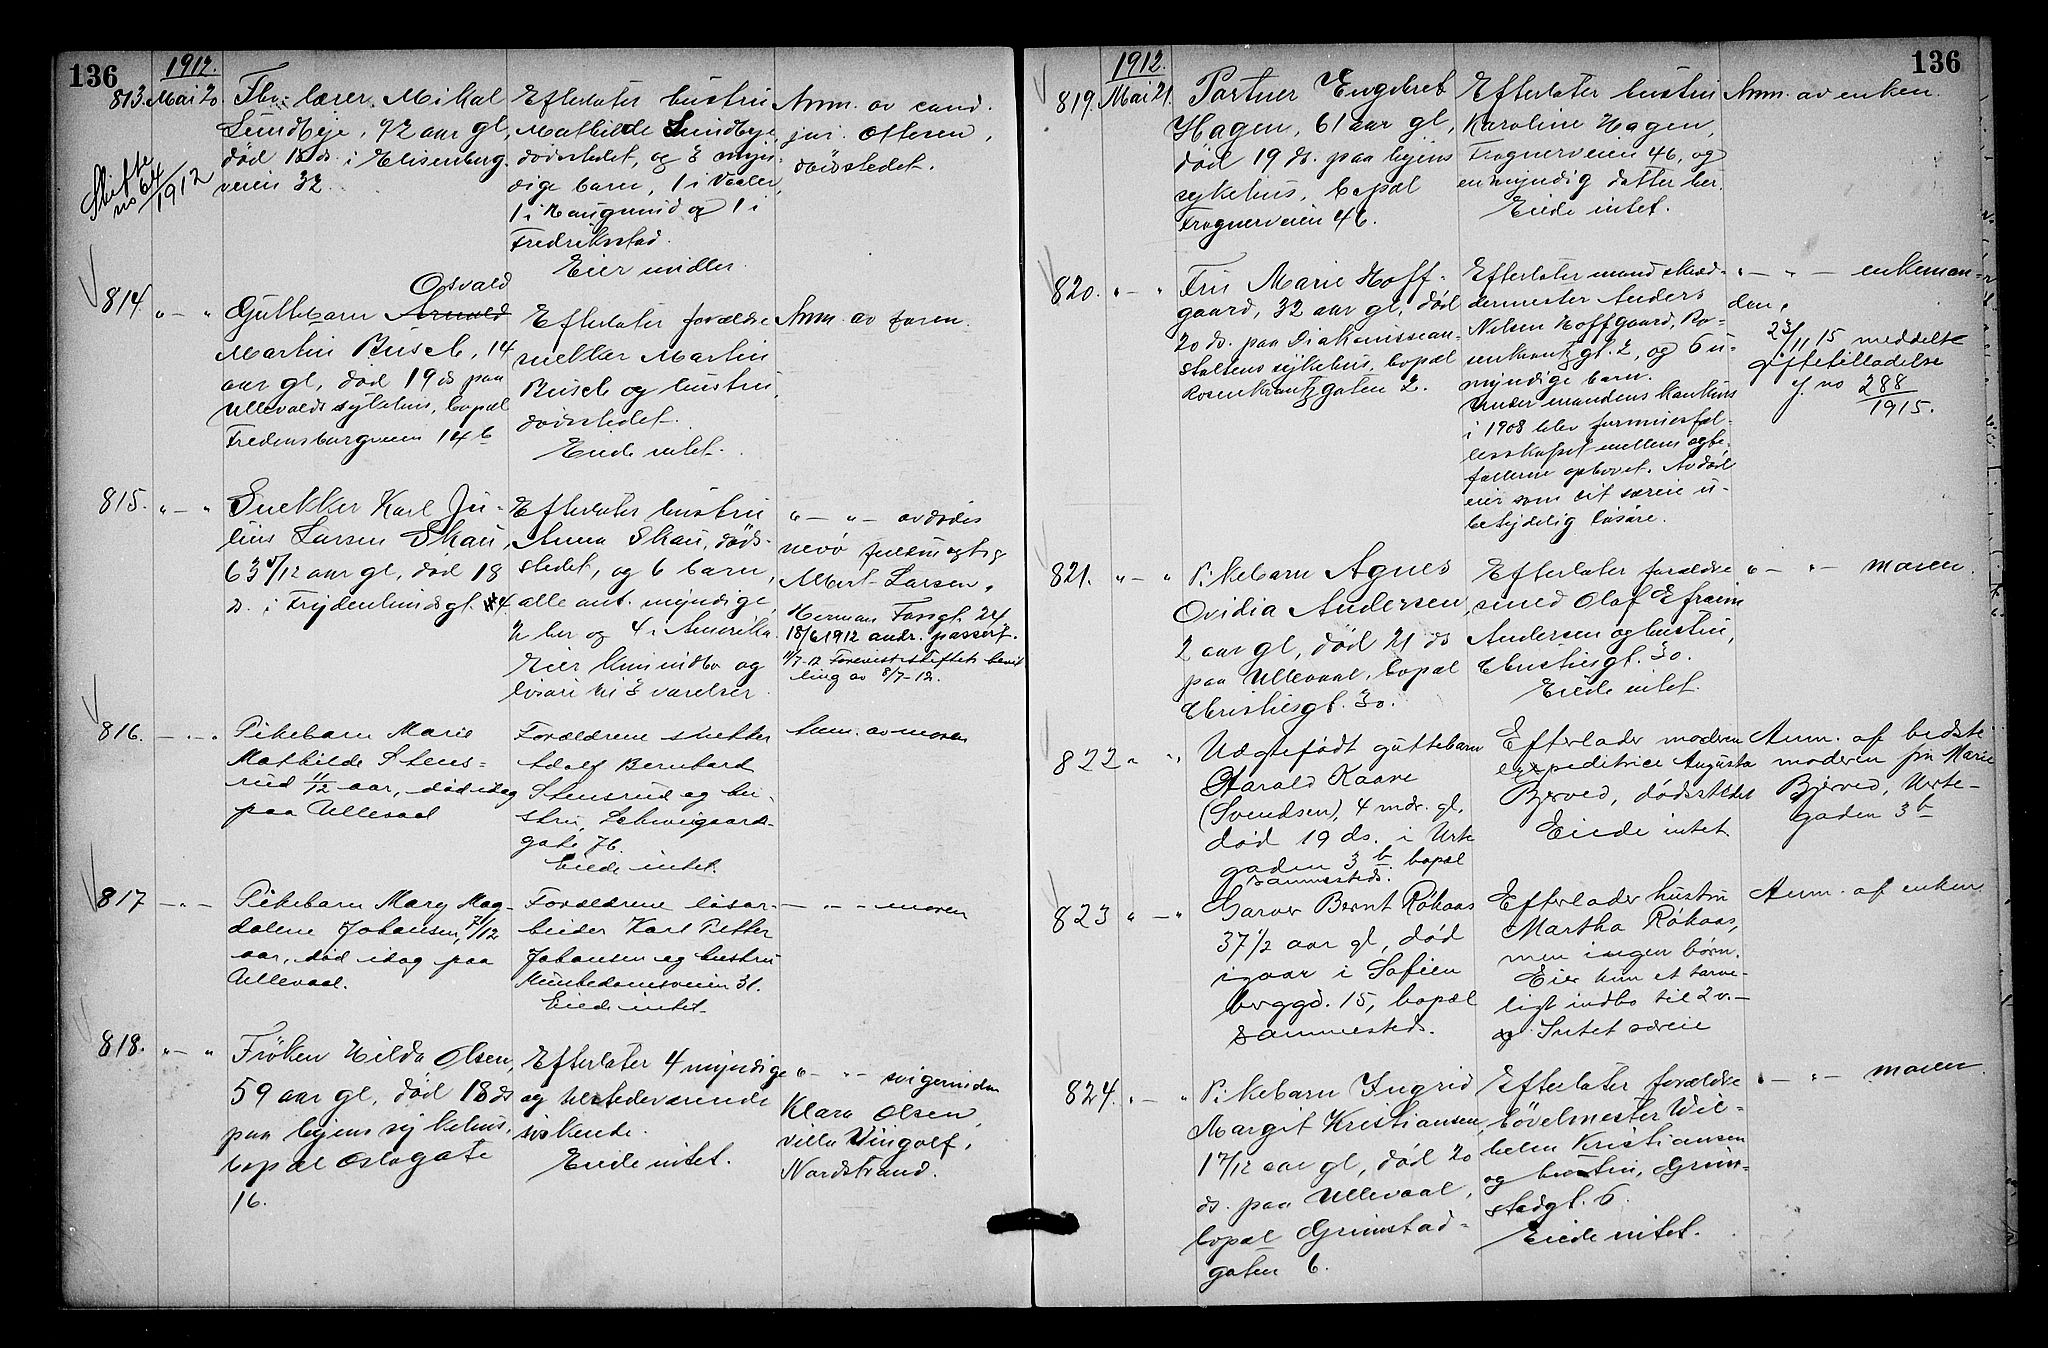 136
1912.
813. Mai 20
Fhv. lærer Mikal
Lundbye, 72 aar gl,
død 18 ds. i Elisenberg-
veien 32.
Efterlater hustru
Mathilde Lundbye
dødsstedet, og 3 myn-
dige barn, 1 i Vaaler,
1 i Haugsund og 1 i
Fredriksstad.
Eier midler.
Anm. av cand.
jur. Ottesen,
dødsstedet.
Skifte
no 64
1912
814. " — "
Osvald
Guttebarn Arnold
Martin Busch, 14
aar gl, død 19 ds paa
Ullevolds sykehus, bopæl
Fredensborgveien 14 b
Efterlater forældre
snekker Martin
Busch og hustru,
dødsstedet.
Eiede intet.
Anm. av faren.
815. " — "
Snekker Karl Ju-
lius Larsen Skau,
63 5/12 aar gl, død 18
ds. i Frydenlundsgt. 4
Efterlater hustru
Anna Skau, døds-
stedet, og 6 barn,
alle ant. myndige,
2 her og 4 i Amerika.
Eier kun indbo og
løsøre til 3 værelser.
" — " — avdødes
nevø fuldmægtig
Albert Larsen,
Herman Fossgt. 24
18/6 1912 andr. passerf.
11/7-12 Forevist Skiftets bevil
ling av 8/7-12.
816. — " — "
Pikebarn Marie
Mathilde Stens-
rud 11/12 aar, død idag
paa Ullevaal
Forældrene snekker
Adolf Bernhard
Stensrud og hu-
stru, Schweigaards-
gate 76.
Eiede intet.
Anm. av moren
817 — " —
Pikebarn Mary Mag-
dalene Johansen, 7/12
aar, død idag paa
Ullevaal.
Forældrene løsar-
beider Karl Petter
Johansen og hustru
Munkedamsveien 31.
Eiede intet.
— " — moren
818. " — "
Frøken Hilda Olsen,
59 aar gl, død 18 ds
paa byens sykehus,
bopæl Oslogate
16.
Efterlater 4 myndige
og tilstedeværende
søskende.
Eiede intet.
" — " — svigerinden
Klara Olsen,
villa Vingolf,
Nordstrand.
136
1912.
819. Mai 21.
Portner Engebret
Hagen, 61 aar gl,
død 19 ds. paa byens
sykehus, bopæl
Frognerveien 46.
Efterlater hustru
Karoline Hagen,
Frognerveien 46, og
en myndig datter her.
Eiede intet.
Anm. av enken.
820. " — "
Fru Marie Hoff-
gaard, 32 aar gl, død
20 ds. paa Diakonissean-
staltens sykehus, bopæl
Rosenkrantzgaten 2.
Efterlater mand skræd-
dermester Anders
Nilsen Hoffgaard, Ro-
senkrantzgt. 2, og 6 u-
myndige barn.
Under mandens konkurs
i 1908 blev formuesfæl-
lesskapet mellem egte-
fællerne ophævet. Avdøde
eier som sit særeie u-
betydelig løsøre.
" — " — enkeman-
den,
23/11 15 meddelt
giftetilladelse
j. no 288
1915.
821. " — "
Pikebarn Agnes
Ovidia Andersen,
2 aar gl, død 21 ds
paa Ullevaal, bopæl
Christiesgt. 30.
Efterlater forældre
smed Olaf Efraim
Andersen og hustru,
Christiesgt. 30.
Eiede intet.
" — " — moren.
822 " "
Uægtefødt guttebarn
Harald Kaare
(Svendsen), 4 mdr. gl,
død 19 ds. i Urte
gaden 3 b. bopæl
sammesteds.
Efterlader moderen
expeditrice Augusta
Bjerved, dødsstedet
Eiede intet
Anm. af bedste
moderen fru Marie
Bjerved, Urte-
gaden 3 b
823 " — "
Garver Bernt Røkaas
37 1/2 aar gl, død
igaar i Sofien
berggd. 15, bopæl
sammesteds.
Efterlader hustru
Martha Røkaas,
men ingen børn.
Eier kun et tarve-
ligt indbo til 2 v.—
Intet særeie
Anm. af enken
824. " — "
Pikebarn Ingrid
Margit Kristiansen,
1 7/12 aar gl, død 20
ds. paa Ullevaal,
bopæl Grimstad-
gaten 6.
Efterlater forældre
høvelmester Wil-
helm Kristiansen
og hustru, Grim-
stadgt. 6.
Eiede intet.
" — " — moren.